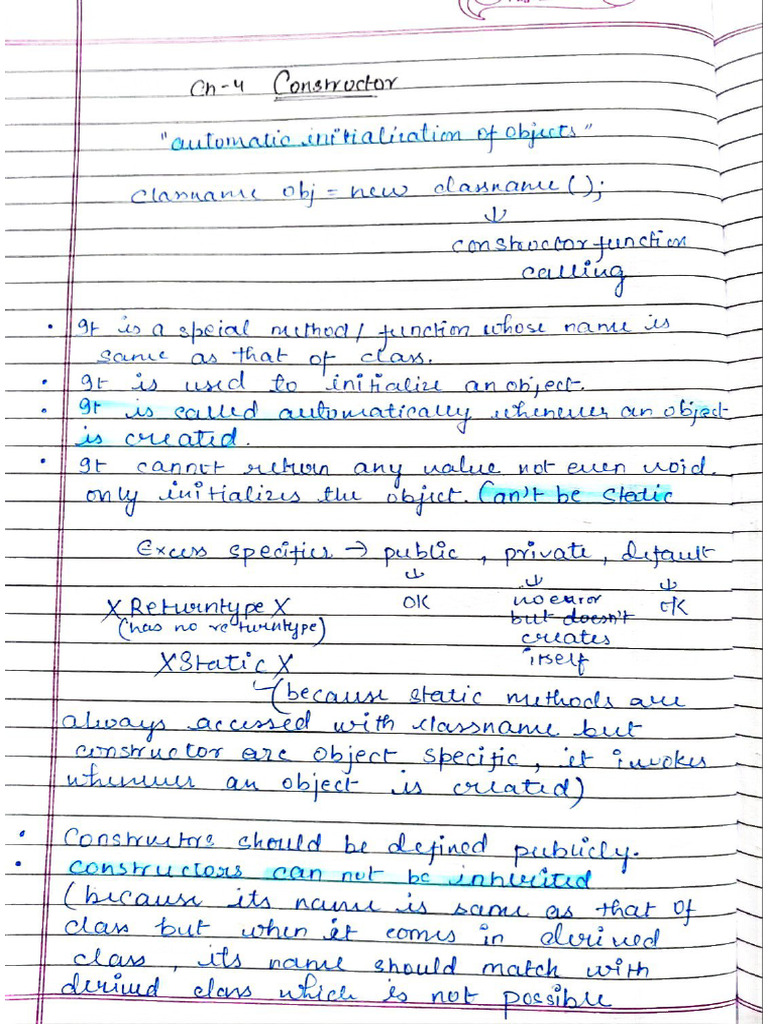 Ch-4 Constructor
"automatic initialization of objects"
Classname obj = new classname();
↓
constructor function
calling
• It is a speial method / function whose name is
same as that of class.
• It is used to initialize an object.
• It is called automatically whenever an object
is created.
• It cannot return any value not even void.
only initializes the object. Can't be static
Excess specifies → public, private, default
↓ ↓ ↓
X Returntype X OK no error OK
(has no returntype) but doesn't
creates
X Static X itself
(because static methods are
always accessed with classname but
constructor are object specific, it invokes
whenever an object is created)
• Constructors should be defined publicly.
• constructors can not be inherited
(because its name is same as that of
class but when it comes in derived
class, its name should match with
derived class which is not possible